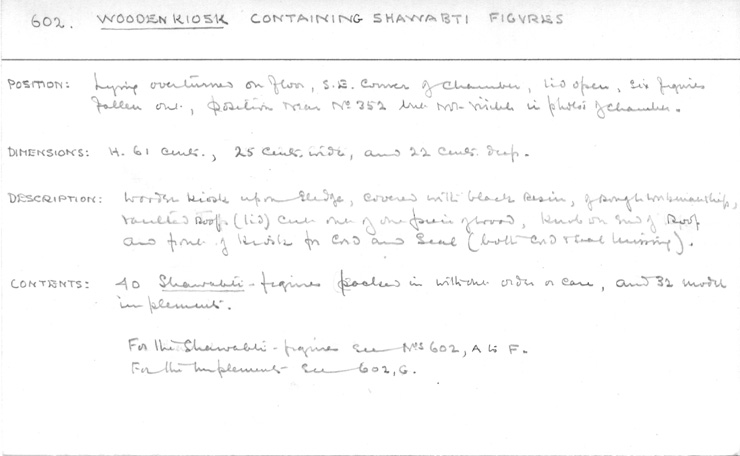 602. WOODEN KIOSK CONTAINING SHAWABTI FIGURES
POSITION: Lying overturned on floor, S.E. Corner of Chamber, lid open, six figures
fallen out, position near No 352 but not visible in photos of chamber.
DIMENSIONS: H. 61 cents., 25 cents. wide, and 22 cents. deep.
DESCRIPTION: Wooden kiosk upon sledge, covered with black resin, of rough workmanship,
vaulted roof (lid) cut out of one piece of wood, knob on end of roof
and front of kiosk for cord and seal (both cord & seal missing).
CONTENTS: 40 Shawabti-figures packed in without order or care, and 32 model
implements.
For the Shawabti-figures see Nos 602, A to F.
For the implements see 602, G.